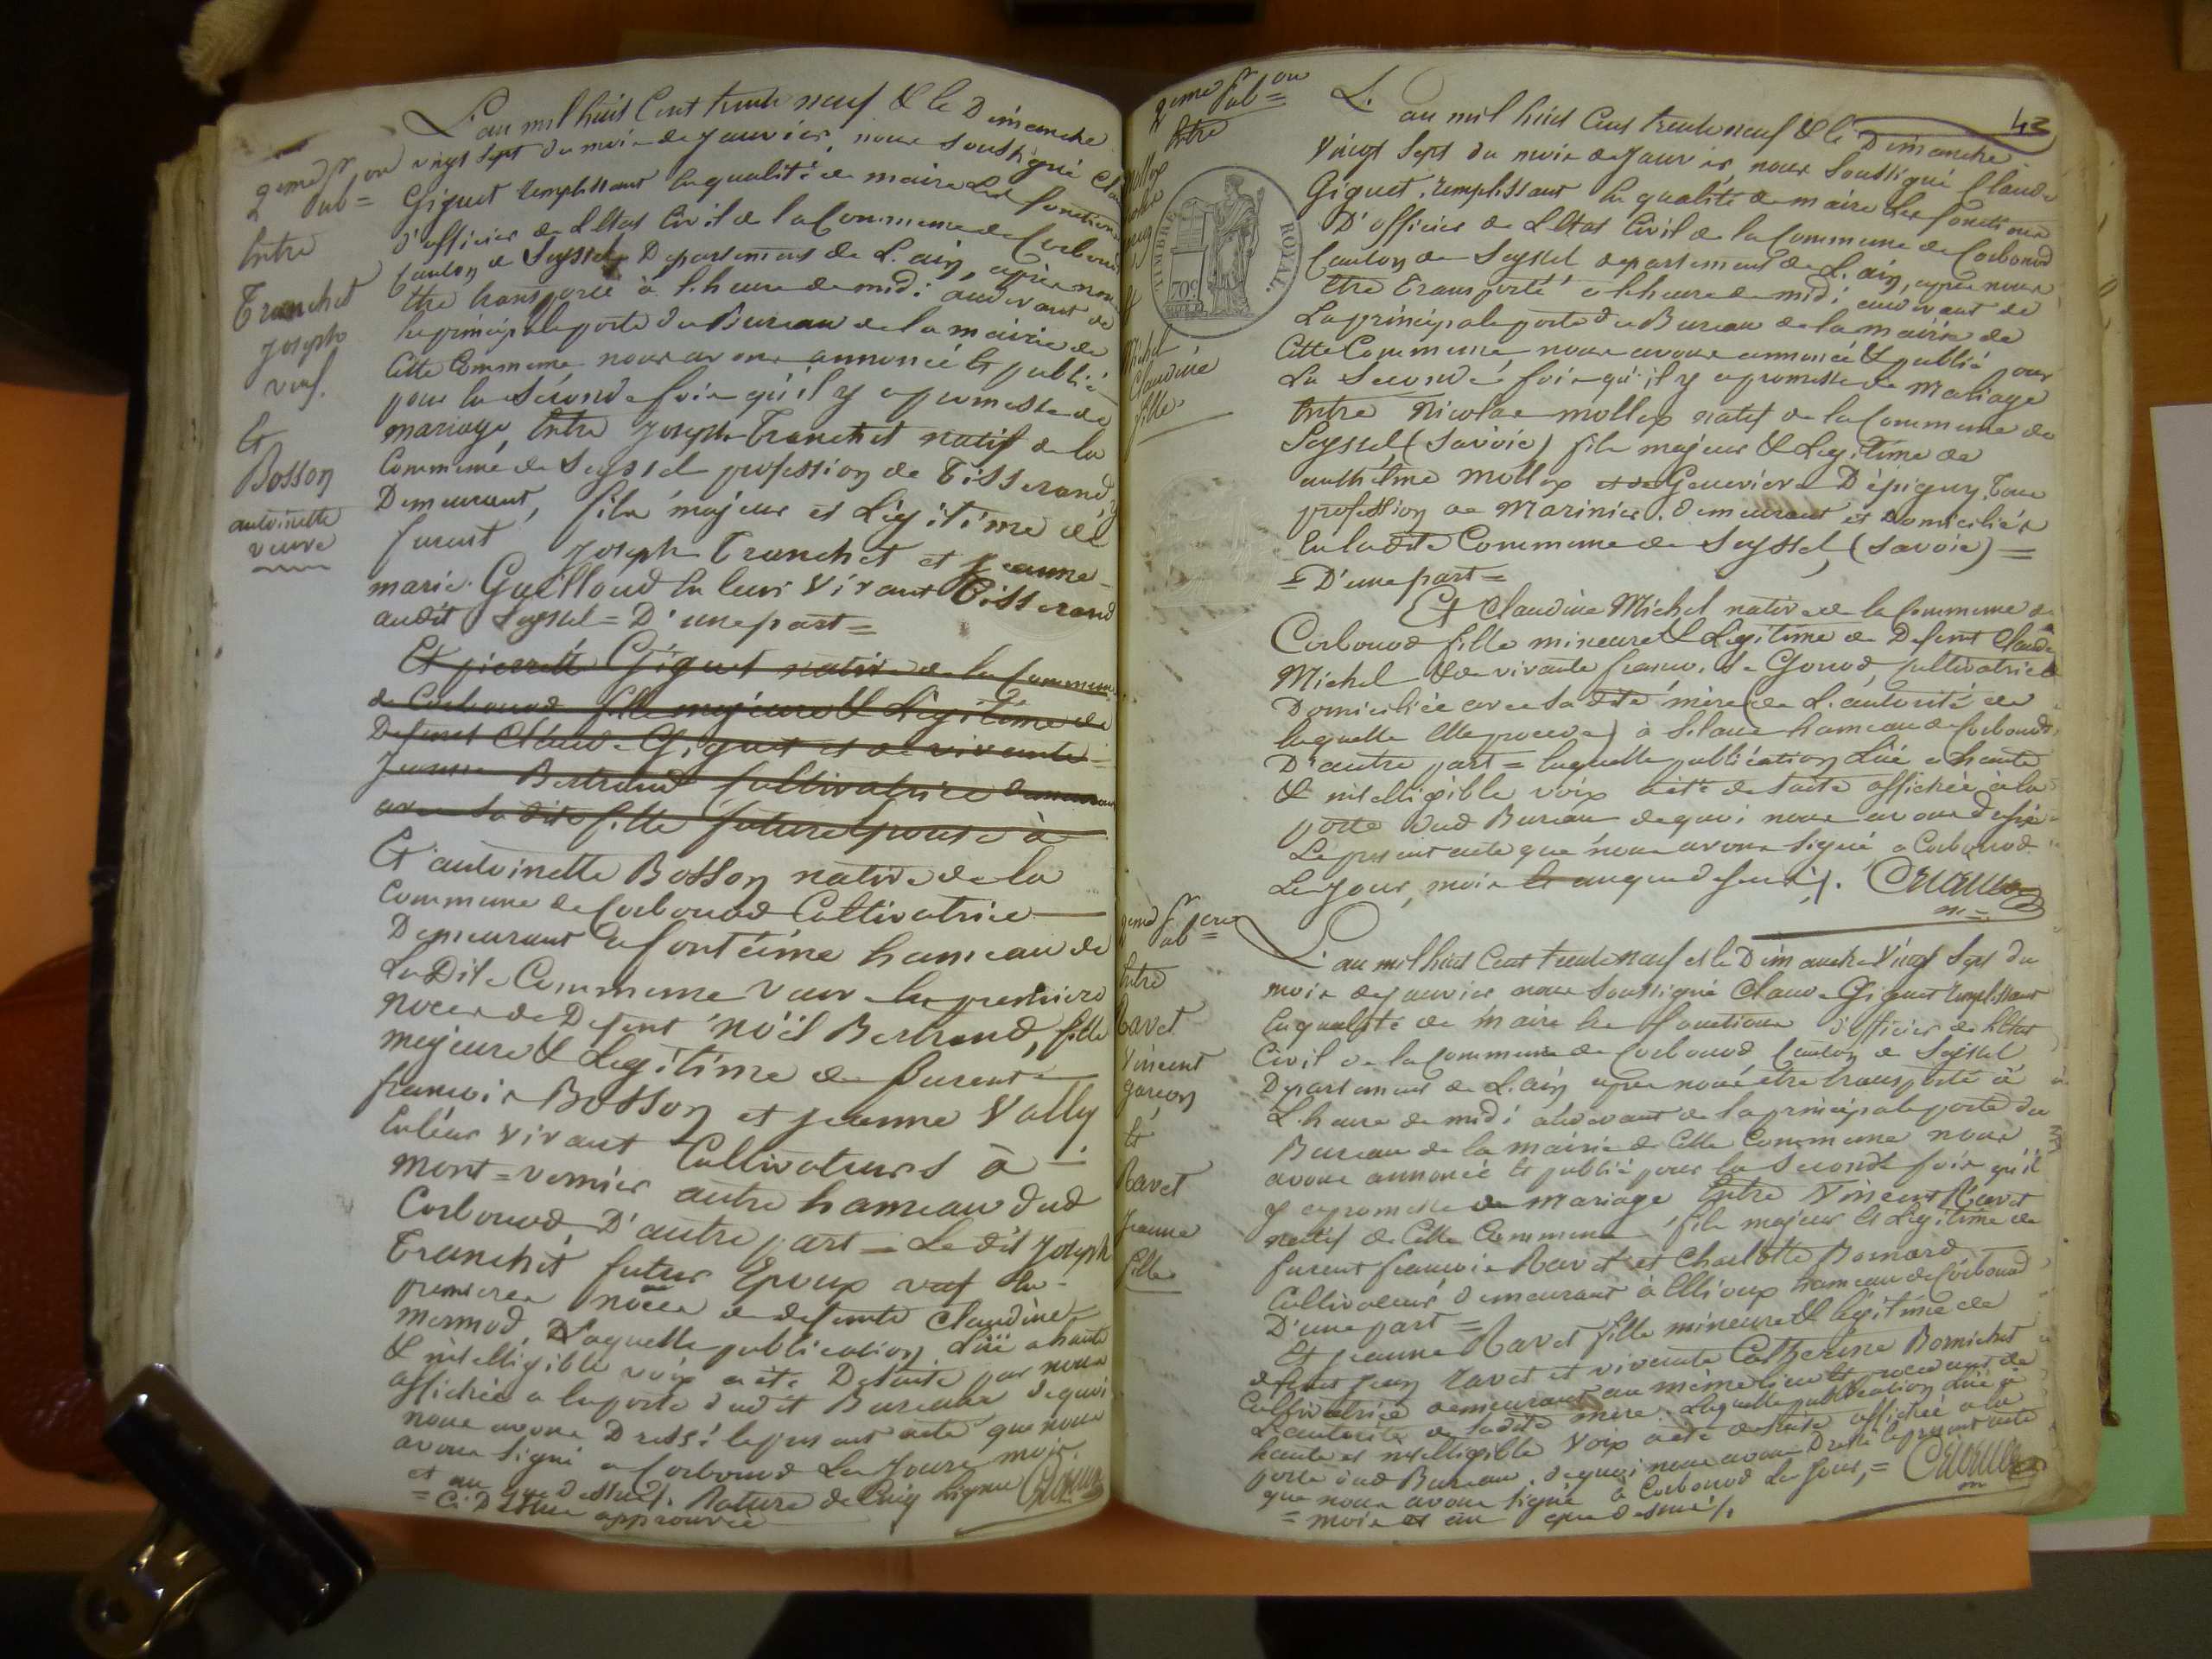 2eme pon
Pub=
Entre
Tranchet
Joseph
veuf.
Et
Bosson
antoinette
veuve
L'an mil huit Cent trente neuf & le Dimanche
vingt sept du mois de Janvier, nous soussigné
Giguet remplissant en qualité de maire Les fonctions
d'officier de L'Etat Civil de la Commune de Corbonod
Canton de Seyssel Departement de L'ain, après nous
être transporté à l'heure de midi audevant de
la principale porte du Bureau de la mairie de
Cette Commune nous avons annoncé et publié
pour la séconde fois qu'il y a promesse de
mariage, Entre Joseph Tranchet natif de la
Commune de Seyssel profession de Tisserand, y
Demeurant, fils majeur et Légitime de
furent Joseph Tranchet et Jeanne-
marie Guilloud en leur vivant Tisserand
audit Seyssel = D'une part =
Et pierrette Giguet native de la Commune
de Corbonod fille majeure & Légitime de
Defunt Claude Giguet et de vivante
Jeanne Bertrand Cultivatrice demeurant
avec sa dite fille future épouse à
Et antoinette Bosson native de la
Commune de Corbonod Cultivatrice
Demeurant à fontéime hameau de
La Dite Commune veuve en premiere
noces de Defunt noël Bertrand, fille
majeure & Legitime de furent
francois Bosson et jeanne Vally
En leur vivant Cultivateurs à
Mont=vernier autre hameau dud
Corbonod, D'autre part = Le dit Joseph
Tranchet futur Epoux veuf en
premieres noces de defunte Claudine
mermod. Laquelle publication Lüe a haute
& intelligible voix a été Desuite par nous
affichée a la porte dudit Bureau dequoi
nous avons Dressé le present acte que nous
avons signé a Corbonod Les Jour, mois
et an que dessus /. Rature de Cinq Lignes
= Ci Dessus approuvée
2eme pon
Pub=
Entre
Michel
Claudine
fille
43
TIMBRE ROYAL.
709
L'an mil huit Cent trente neuf & le Dimanche
Vingt Sept du mois de Janvier nous Soussigné Claude
Giguet, remplissant En qualité de maire Les fonctions
D'officier de L'Etat Civil de la Commune de Corbonod
Canton de Seyssel departement de L'ain, après nous
être transporté à l'heure de midi audevant de
La principale porte du Bureau de la mairie de
Cette Commune nous avons annoncé & publié pour
La Seconde fois qu'il y a promesse de Mariage
Entre Nicolas mollex natif de la Commune de
Seyssel, (Savoie) fils majeur & Legitime de
anthelme Mollex et de Genevieve Dépigny, Tous
profession de Marinier, demeurant et Domiciliés
En ladite Commune de Seyssel, (Savoie) =
= D'une part =
Et Claudine Michel native de la Commune de
Corbonod fille mineure & Legitime de Defunt Claude
Michel & de vivante francoise Gonod, Cultivatrice
Domiciliée avec sa dite mère (de L'autorité de
laquelle Elle procede) à Silans hameau de Corbonod.
D'autre part = laquelle publication Lüe a haute
& intelligible voix a été desuite affichée à la
porte dud Bureau dequoi nous avons dressé
Le present acte que nous avons signé a Corbonod
Les Jour, mois et an que dessus /.
2eme pon
Pub=
Entre
Ravet
Vincent
garcon
Et
Ravet
Jeanne
fille
L'an mil huit Cent trente neuf et le Dimanche Vingt Sept du
mois de janvier nous Soussigné Claude Giguet remplissant
En qualité de Maire les fonctions d'officier de L'Etat
Civil de la Commune de Corbonod Canton de Seyssel
Departement de L'ain après nous être transporté à
L'heure de midi audevant de la principale porte du
Bureau de la mairie de Cette Commune nous
avons annoncé et publié pour la Seconde fois qu'il
y a promesse de mariage Entre Vincent Ravet
natif de Cette Commune fils majeur & Légitime de
furent francois Ravet et Charlotte Bornard
Cultivateur, demeurant à Ettioux hameau de Corbonod
D'une part =
Et jeanne Ravet fille mineure & légitime de
defunt Jean Ravet et vivante Catherine Bornichet
Cultivatrice demeurant au même lieu & procedant de
L'autorité de sadite mere. Laquelle publication Lüe à
haute et intelligible voix a été desuite affichée a la
porte dud Bureau, dequoi nous avons Dressé le present acte
que nous avons signé à Corbonod Les Jour, =
= mois et an que dessus /.